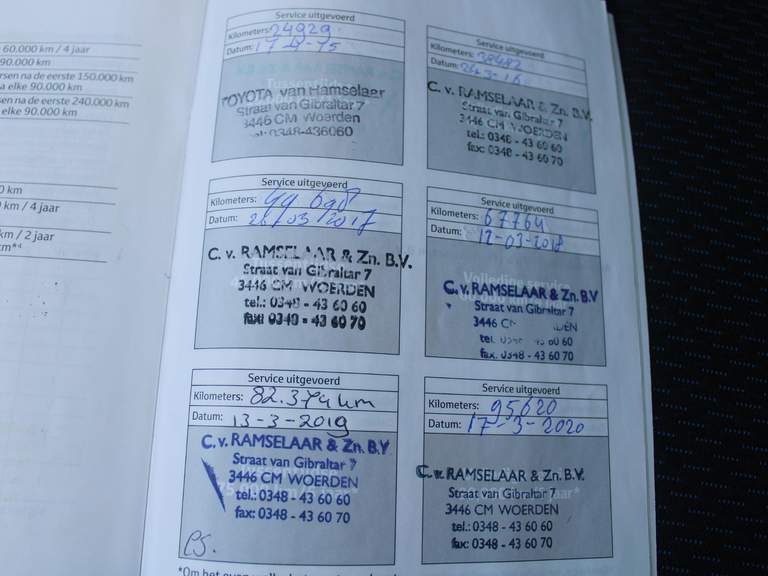 60.000 km / 4 jaar
90.000 km
rsen na de eerste 150.000 km
a elke 90.000 km
en na de eerste 240.000 km
elke 90.000 km
0 km
km / 4 jaar
km / 2 jaar
Service uitgevoerd
Kilometers: 24929
Datum:
TOYOTA van Ramselaar
Straat van Gibraltar 7
3446 CM Woerden
tel: 0348-436060
Service uitgevoerd
Kilometers:
Datum: 24-3-16
C. v. RAMSELAAR & Zn. B.V.
Straat van Gibraltar 7
3446 CM WOERDEN
tel.: 0348 - 43 60 60
fax: 0348 - 43 60 70
Service uitgevoerd
Kilometers:
Datum: 26/03/2017
C. v. RAMSELAAR & Zn. B.V.
Straat van Gibraltar 7
3446 CM WOERDEN
tel.: 0348 - 43 60 60
fax: 0348 - 43 60 70
Service uitgevoerd
Kilometers: 67764
Datum: 12-03-2018
Volledige service
C. v. RAMSELAAR & Zn. B.V
Straat van Gibraltar 7
3446 C DEN
tel. 60 60
fax. 0348 - 43 60 70
Service uitgevoerd
Kilometers: 82.374 km
Datum: 13-3-2019
C. v. RAMSELAAR & Zn. B.V
Straat van Gibraltar 7
3446 CM WOERDEN
tel.: 0348 - 43 60 60
fax: 0348 - 43 60 70
Service uitgevoerd
Kilometers: 95620
Datum: 17-3-2020
C. v. RAMSELAAR & Zn. B.V.
Straat van Gibraltar 7
3446 CM WOERDEN
tel.: 0348 - 43 60 60
fax: 0348 - 43 60 70